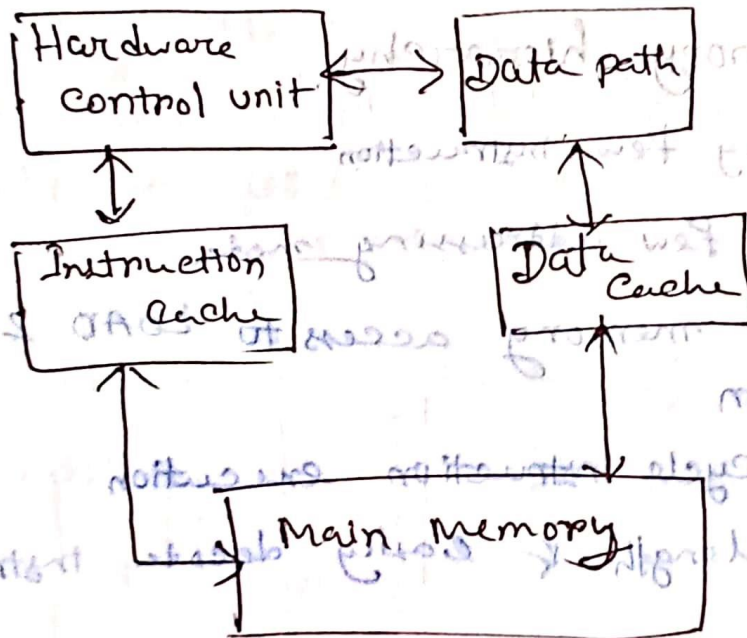 Hardware
control unit
Data path
Instruction
Cache
Data
Cache
Main Memory